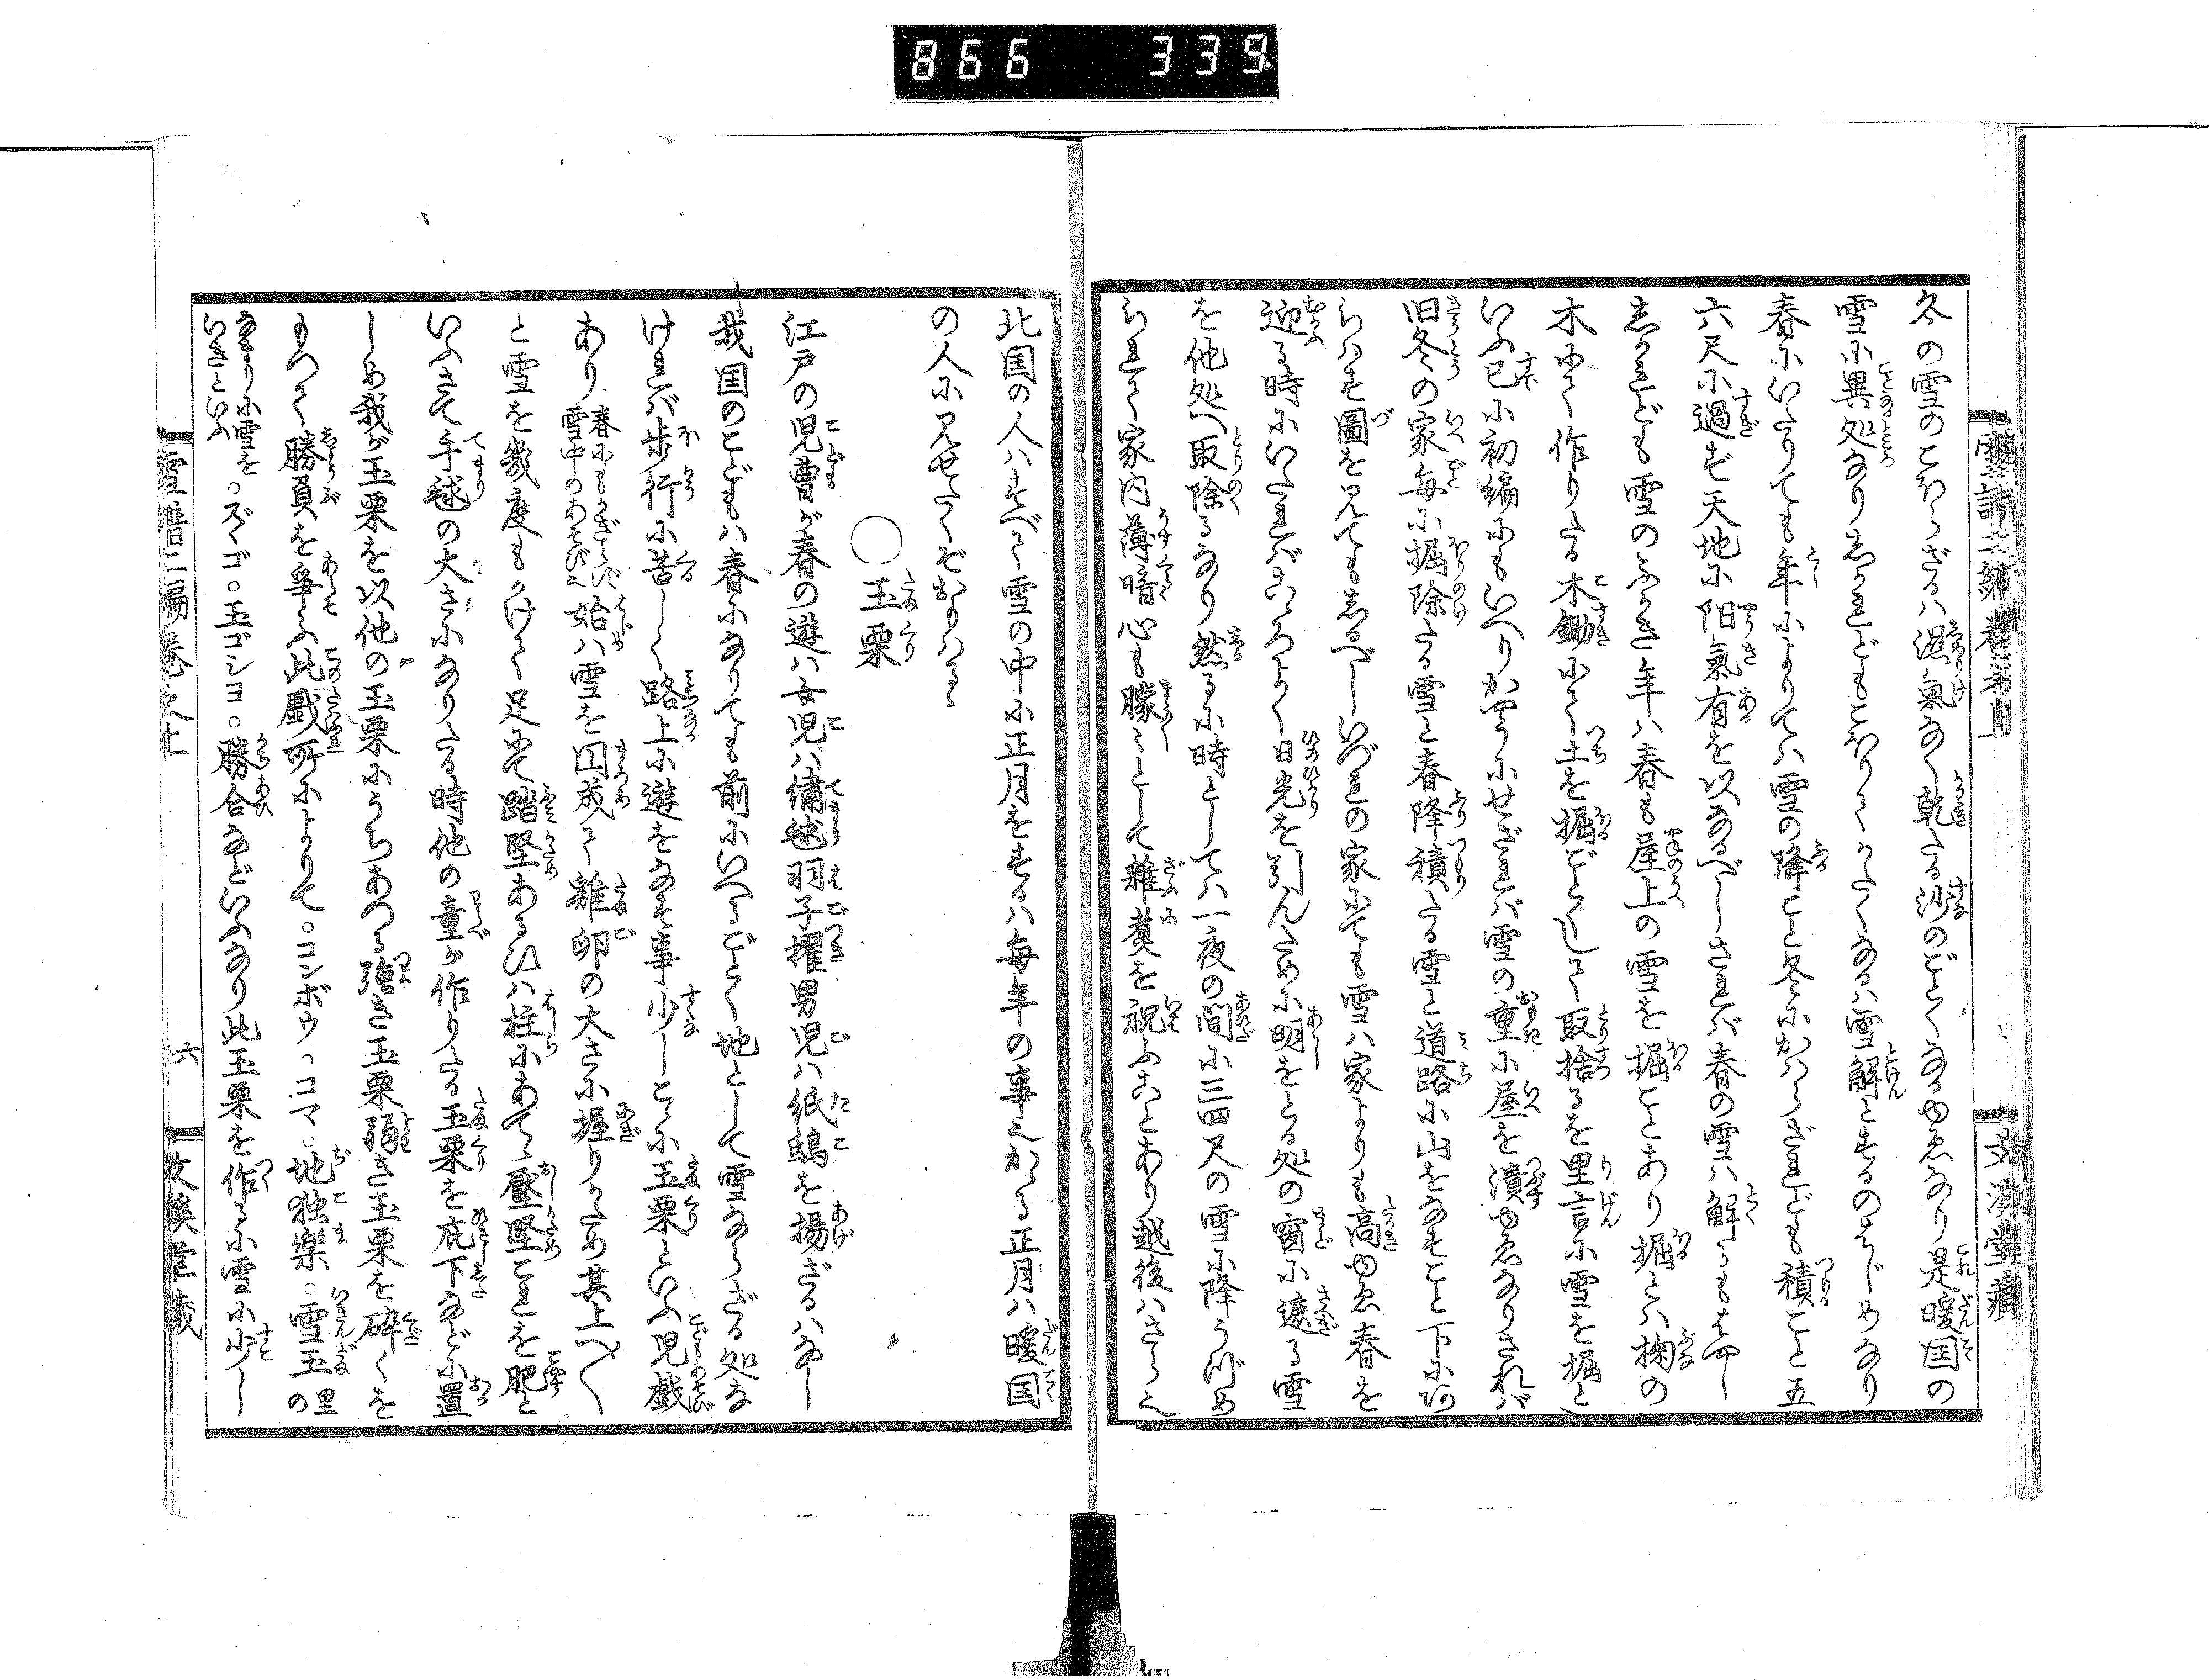 866 339
冬の雪のこほらざるは湿気なく乾たる沙のごとくなるゆゑなり是暖国の
雪に異処なりしかれどもこほりてかたくなるは雪解とするのはじめなり
春にいたりても年によりては雪の降こと冬にかはらざれども積こと五
六尺に過ず天地に阳氣有を以なるべしされば春の雪は解るもはやし
しかれども雪のふかき年は春も屋上の雪を掘ことあり掘とは椈の
木にて作りたる木鋤にて土を掘ごとくして取捨るを里言に雪を掘と
いふ已に初編にもいへりかやうにせざれば雪の重に屋を潰ゆゑなりされば
旧冬の家毎に掘除たる雪と春降積たる雪と道路に山をなすこと下にあ
らはす圖を見てもしるべしいづれの家にても雪は家よりも高ゆゑ春を
迎る時にいたればこゝろよく日光を引んために明をとる処の窗に遮る雪
を他処へ取除るなり然るに時としては一夜の間に三四尺の雪に降うづめ
られて家内薄暗心も朦々として雑煮を祝ふことあり越後はさら也
北国の人はすべて雪の中に正月をするは毎年の事也かゝる正月は暖国
の人に見せたくぞおもはるゝ
○玉栗
江戸の児曹が春の遊は女児は繍毬羽子擢男児は紙鴟を揚ざるはなし
我国のこどもは春になりても前にいへるごとく地として雪ならざる処な
ければ歩行に苦しく路上に遊をなす事少しこゝに玉栗といふ児戯
あり春にもかぎらず雪中のあそび也始は雪を円成て雞卵の大さに握りかため其上へ〱
と雪を幾度もかけて足にて踏堅あるひは柱にあてゝ壓堅これを肥と
いふさて手毬の大さになりたる時他の童が作りたる玉栗を庇下などに置
しめ我が玉栗を以他の玉栗にうちあつる強き玉栗弱き玉栗を砕くを
もつて勝負を争ふ此戯所によりて。コンボウ。コマ。地独楽。雪玉里の
なまりに雪をいきといふ。ズヽゴ。玉ゴシヨ。勝合などいふなり此玉栗を作るに雪に少し
雪譜二編巻之上 六 文溪堂藏